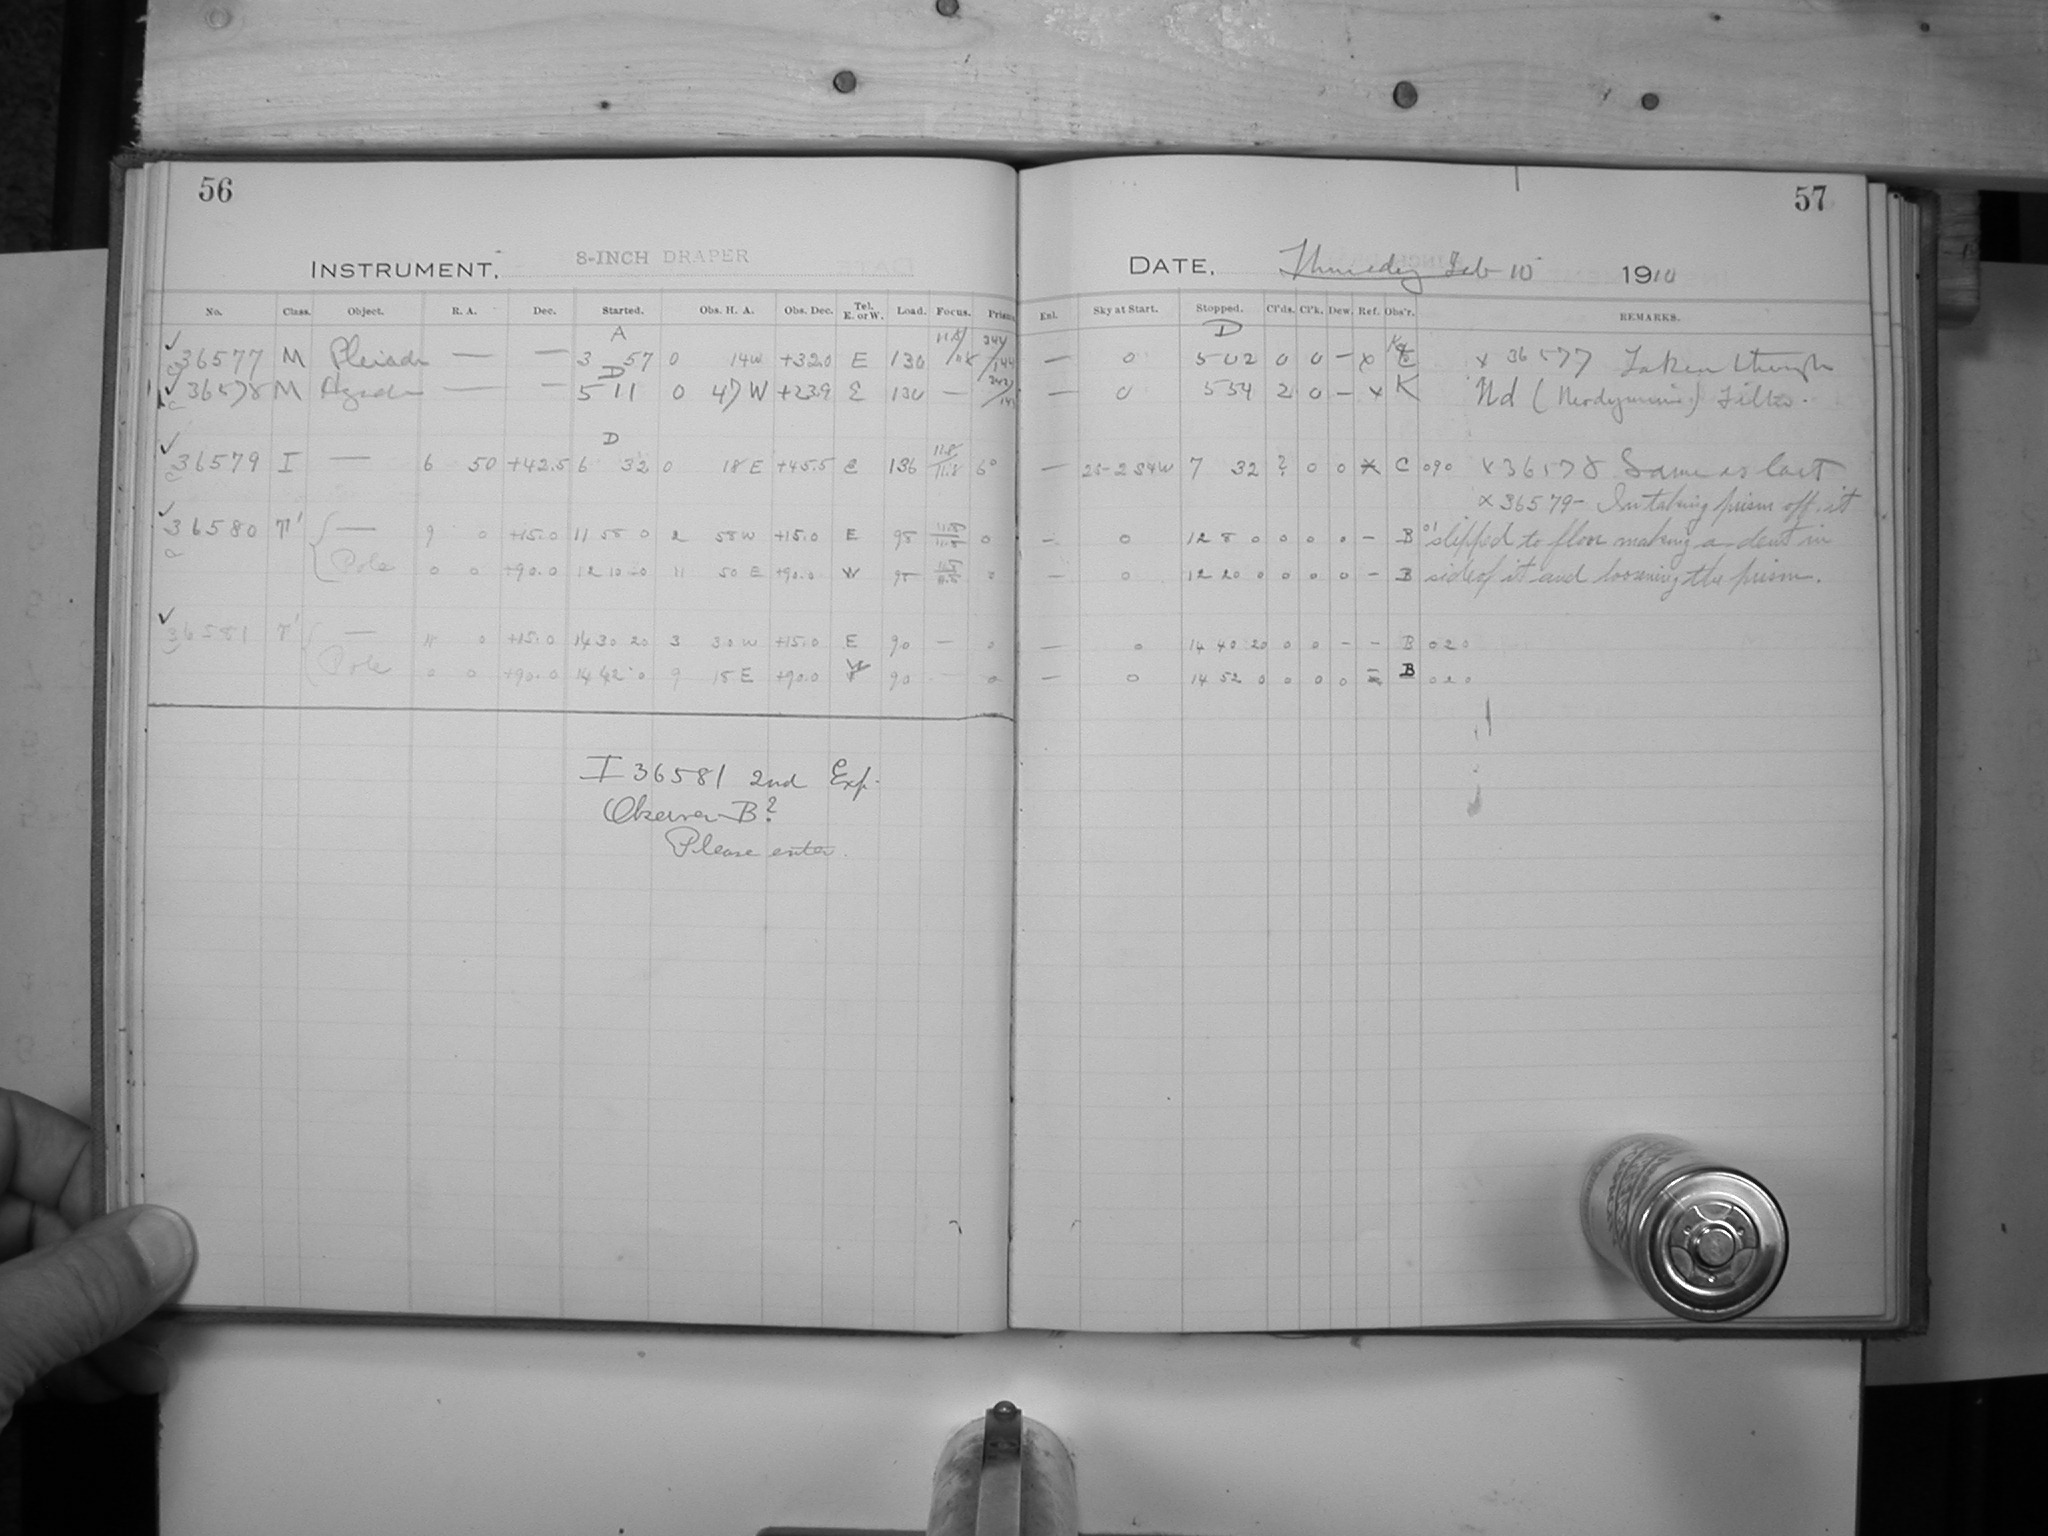 56
57
INSTRUMENT. 8-INCH DRAPER
DATE. Thursday Feb 10 1910
No. Class. Object. R. A. Dec. Started. Obs. H. A. Obs. Dec. Tel. E. or W. Load. Focus. Prism
Enl. Sky at Start. Stopped. Cl'ds. Cl'k. Dew. Ref. Obs'r. REMARKS.
A
D
36577 M — — 3 57 0 14W +32.0 E 130
— 0 5 02 0 0 – x x 36577 Taken through
D
36578 M — — 5 11 0 47 W +23.9 E 130 —
— 0 5 54 2 0 – x K Nd (Neodymium) Filter.
D
36579 I — 6 50 +42.5 6 32 0 18 E +45.5 E 136 11.8/11.8 6°
— 7 32 ? 0 0 x C 090 x 36578 Same as last
x 36579 – In taking prism off it
36580 — 9 0 +15.0 11 58 0 2 58W +15.0 E 98 0
— 0 12 8 0 0 0 0 – B slipped to floor making a dent in
Pole 0 0 +90.0 12 10 0 11 50 E +90.0 W 0
— 0 12 20 0 0 0 0 – B side of it and loosening the prism.
36581 — 11 0 +15.0 14 30 20 3 30W +15.0 E 90 — 0
— 0 14 40 20 0 0 – – B 020
Pole 0 0 +90.0 14 42 0 9 18 E +90.0 W 90 — 0
— 0 14 52 0 0 0 0 B 020
I 36581 2nd Exp.
Observer B?
Please enter.